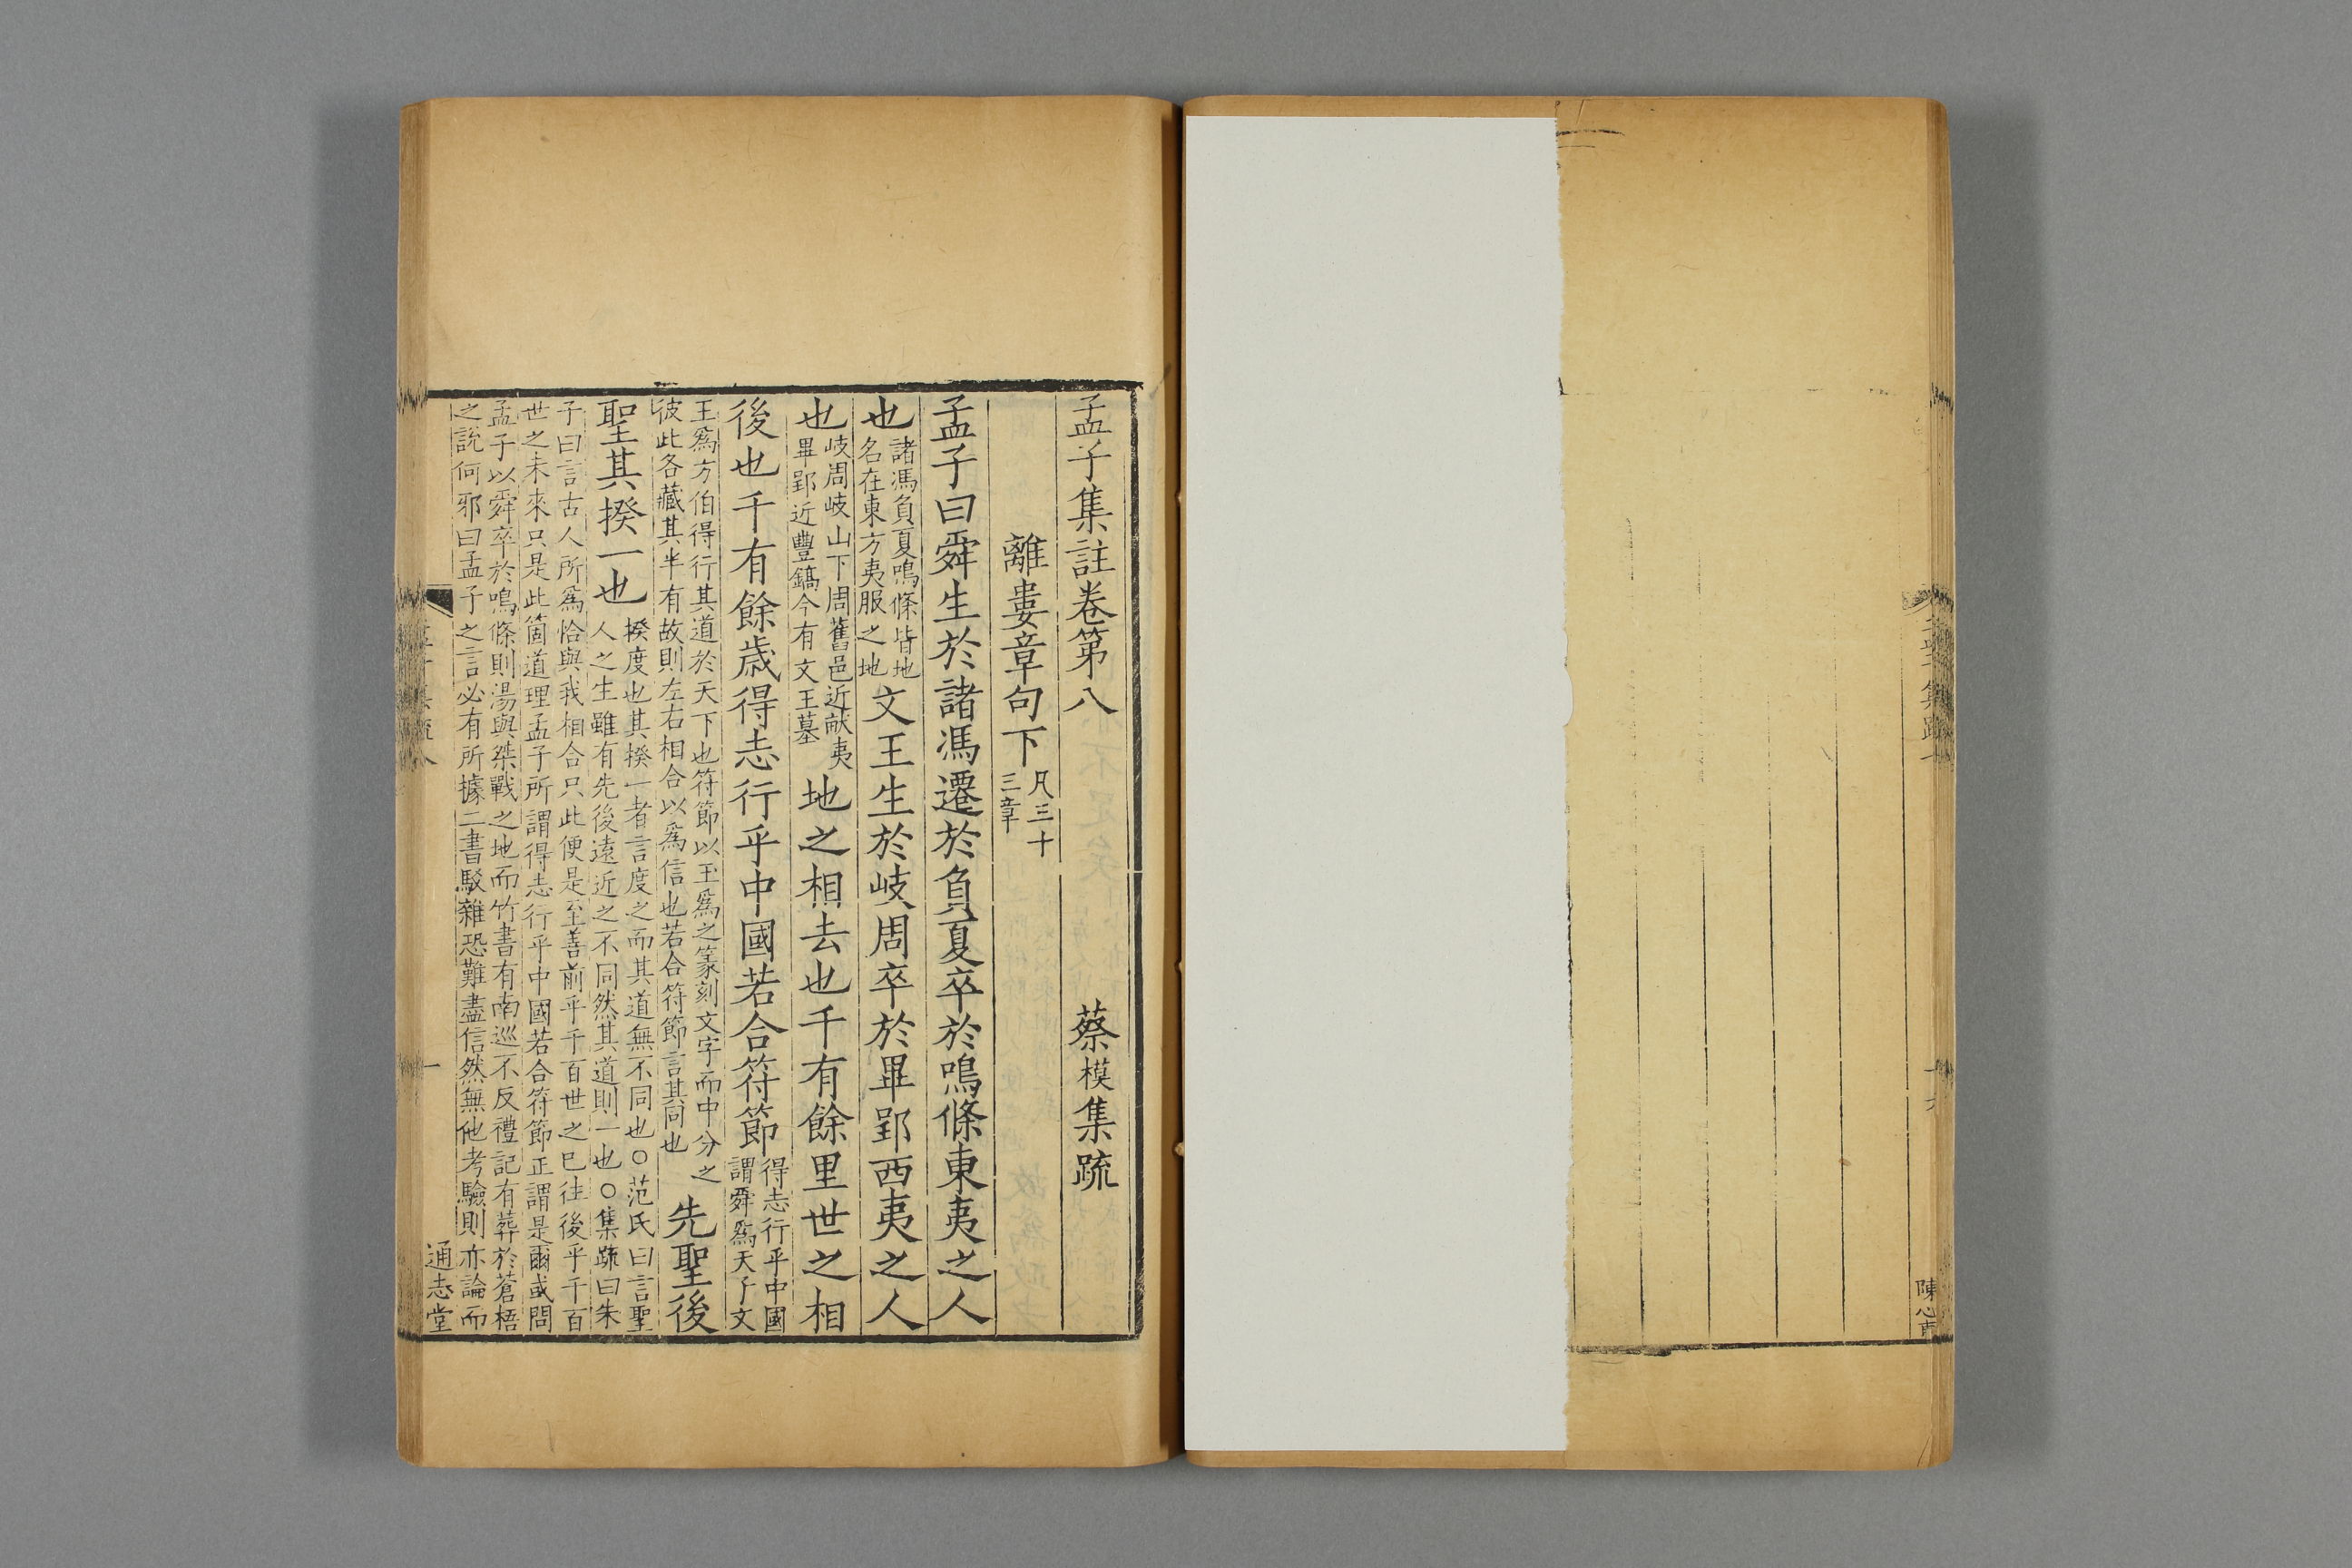 孟子集註卷第八
蔡模集疏
離婁章句下
凡三十
三章
孟子曰舜生於諸馮遷於負夏卒於鳴條東夷之人
也
諸馮負夏鳴條皆地
名在東方夷服之地
文王生於岐周卒於畢郢西夷之人
也
岐周岐山下周舊邑近畎夷
畢郢近豐鎬今有文王墓
地之相去也千有餘里世之相
後也千有餘歲得志行乎中國若合符節
得志行乎中國
謂舜爲天子文
王爲方伯得行其道於天下也符節以玉爲之篆刻文字而中分之
彼此各藏其半有故則左右相合以爲信也若合符節言其同也
先聖後
聖其揆一也
揆度也其揆一者言度之而其道無不同也○范氏曰言聖
人之生雖有先後遠近之不同然其道則一也○集疏曰朱
子曰言古人所爲恰與我相合只此便是至善前乎千百世之已往後乎千百
世之未來只是此箇道理孟子所謂得志行乎中國若合符節正謂是爾或問
孟子以舜卒於鳴條則湯與桀戰之地而竹書有南巡不反禮記有葬於蒼梧
之說何邪曰孟子之言必有所據二書駁雜恐難盡信然無他考驗則亦論而
一
通志堂